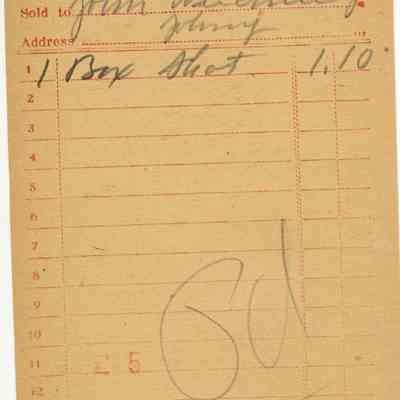 Sold to John
Address
1 1 Box Shot 1.10
2
3
4
5
6
7
8
Pd
9
10
11 5
12